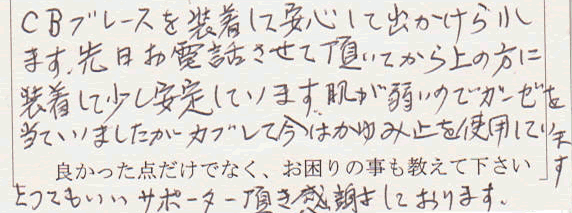 CBブレースを装着して安心して出かけられ
ます。先日お電話させて頂いてから上の方に
装着して少し安定しています。肌が弱いのでガーゼを
当ていましたがカブレて今はかゆみ止を使用しています
良かった点だけでなく、お困りの事も教えて下さい
とってもいいサポーター頂き感謝しております。